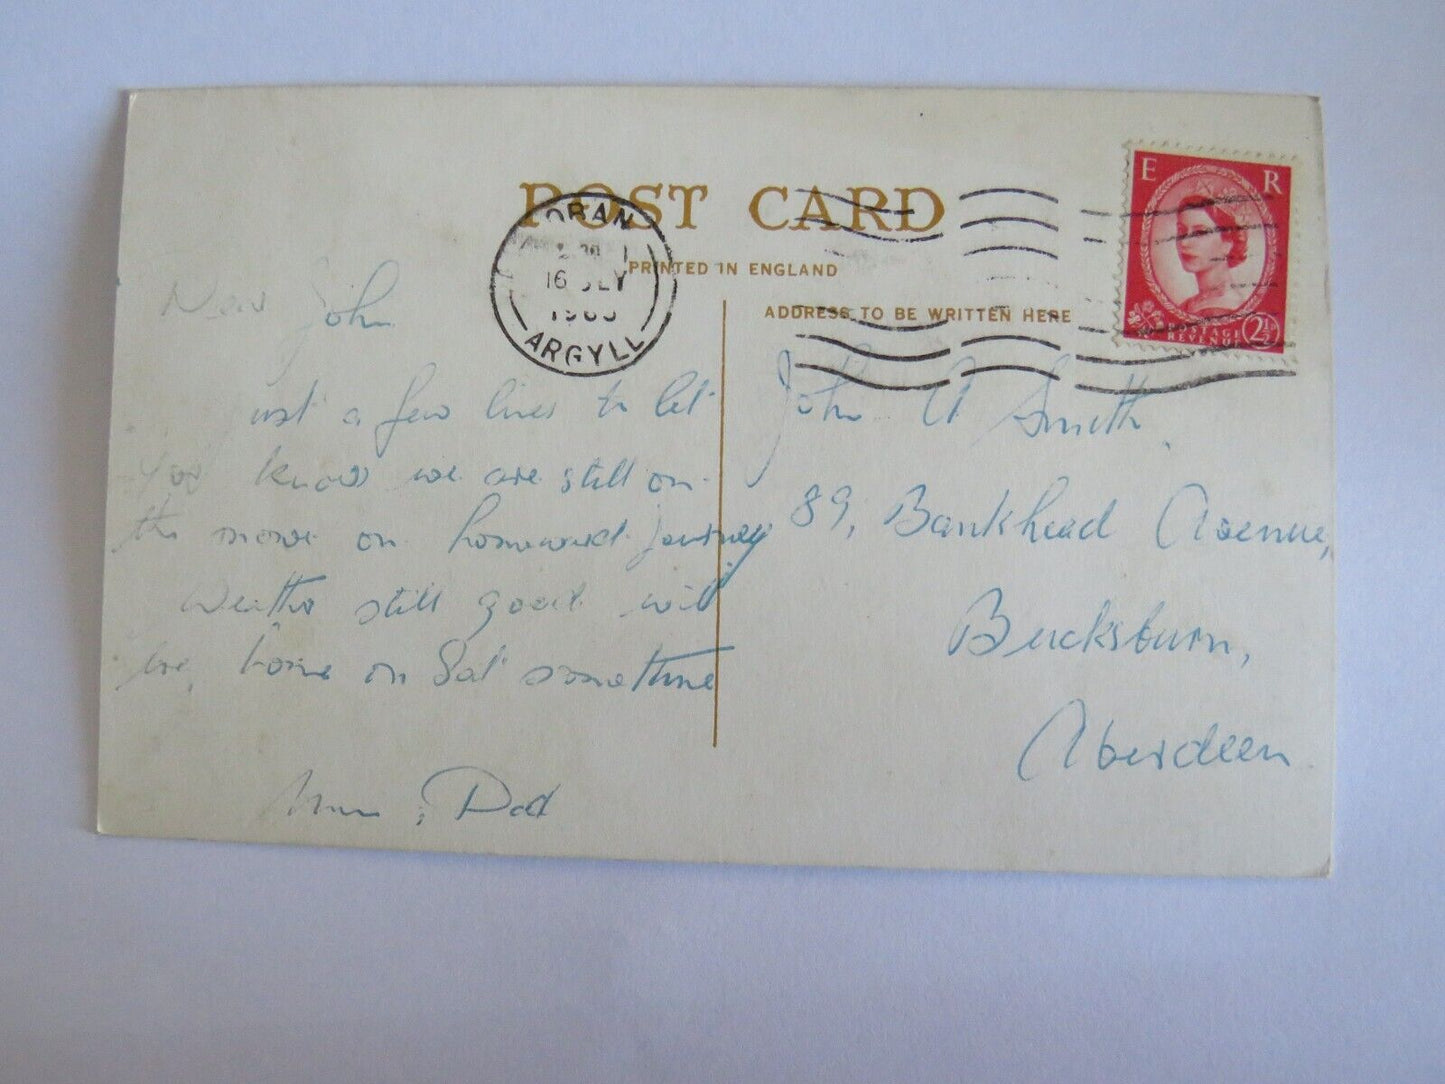 POST CARD
PRINTED IN ENGLAND
ADDRESS TO BE WRITTEN HERE
OBAN
16 JLY
ARGYLL
E R
POSTAGE
REVENUE
2½
Dear John
Just a few lines to let
you know we are still on
the move on homeward journey
Weather still good will
be home on Sat sometime
Mum & Dad
John A Smith
89, Bankhead Avenue,
Bucksburn,
Aberdeen